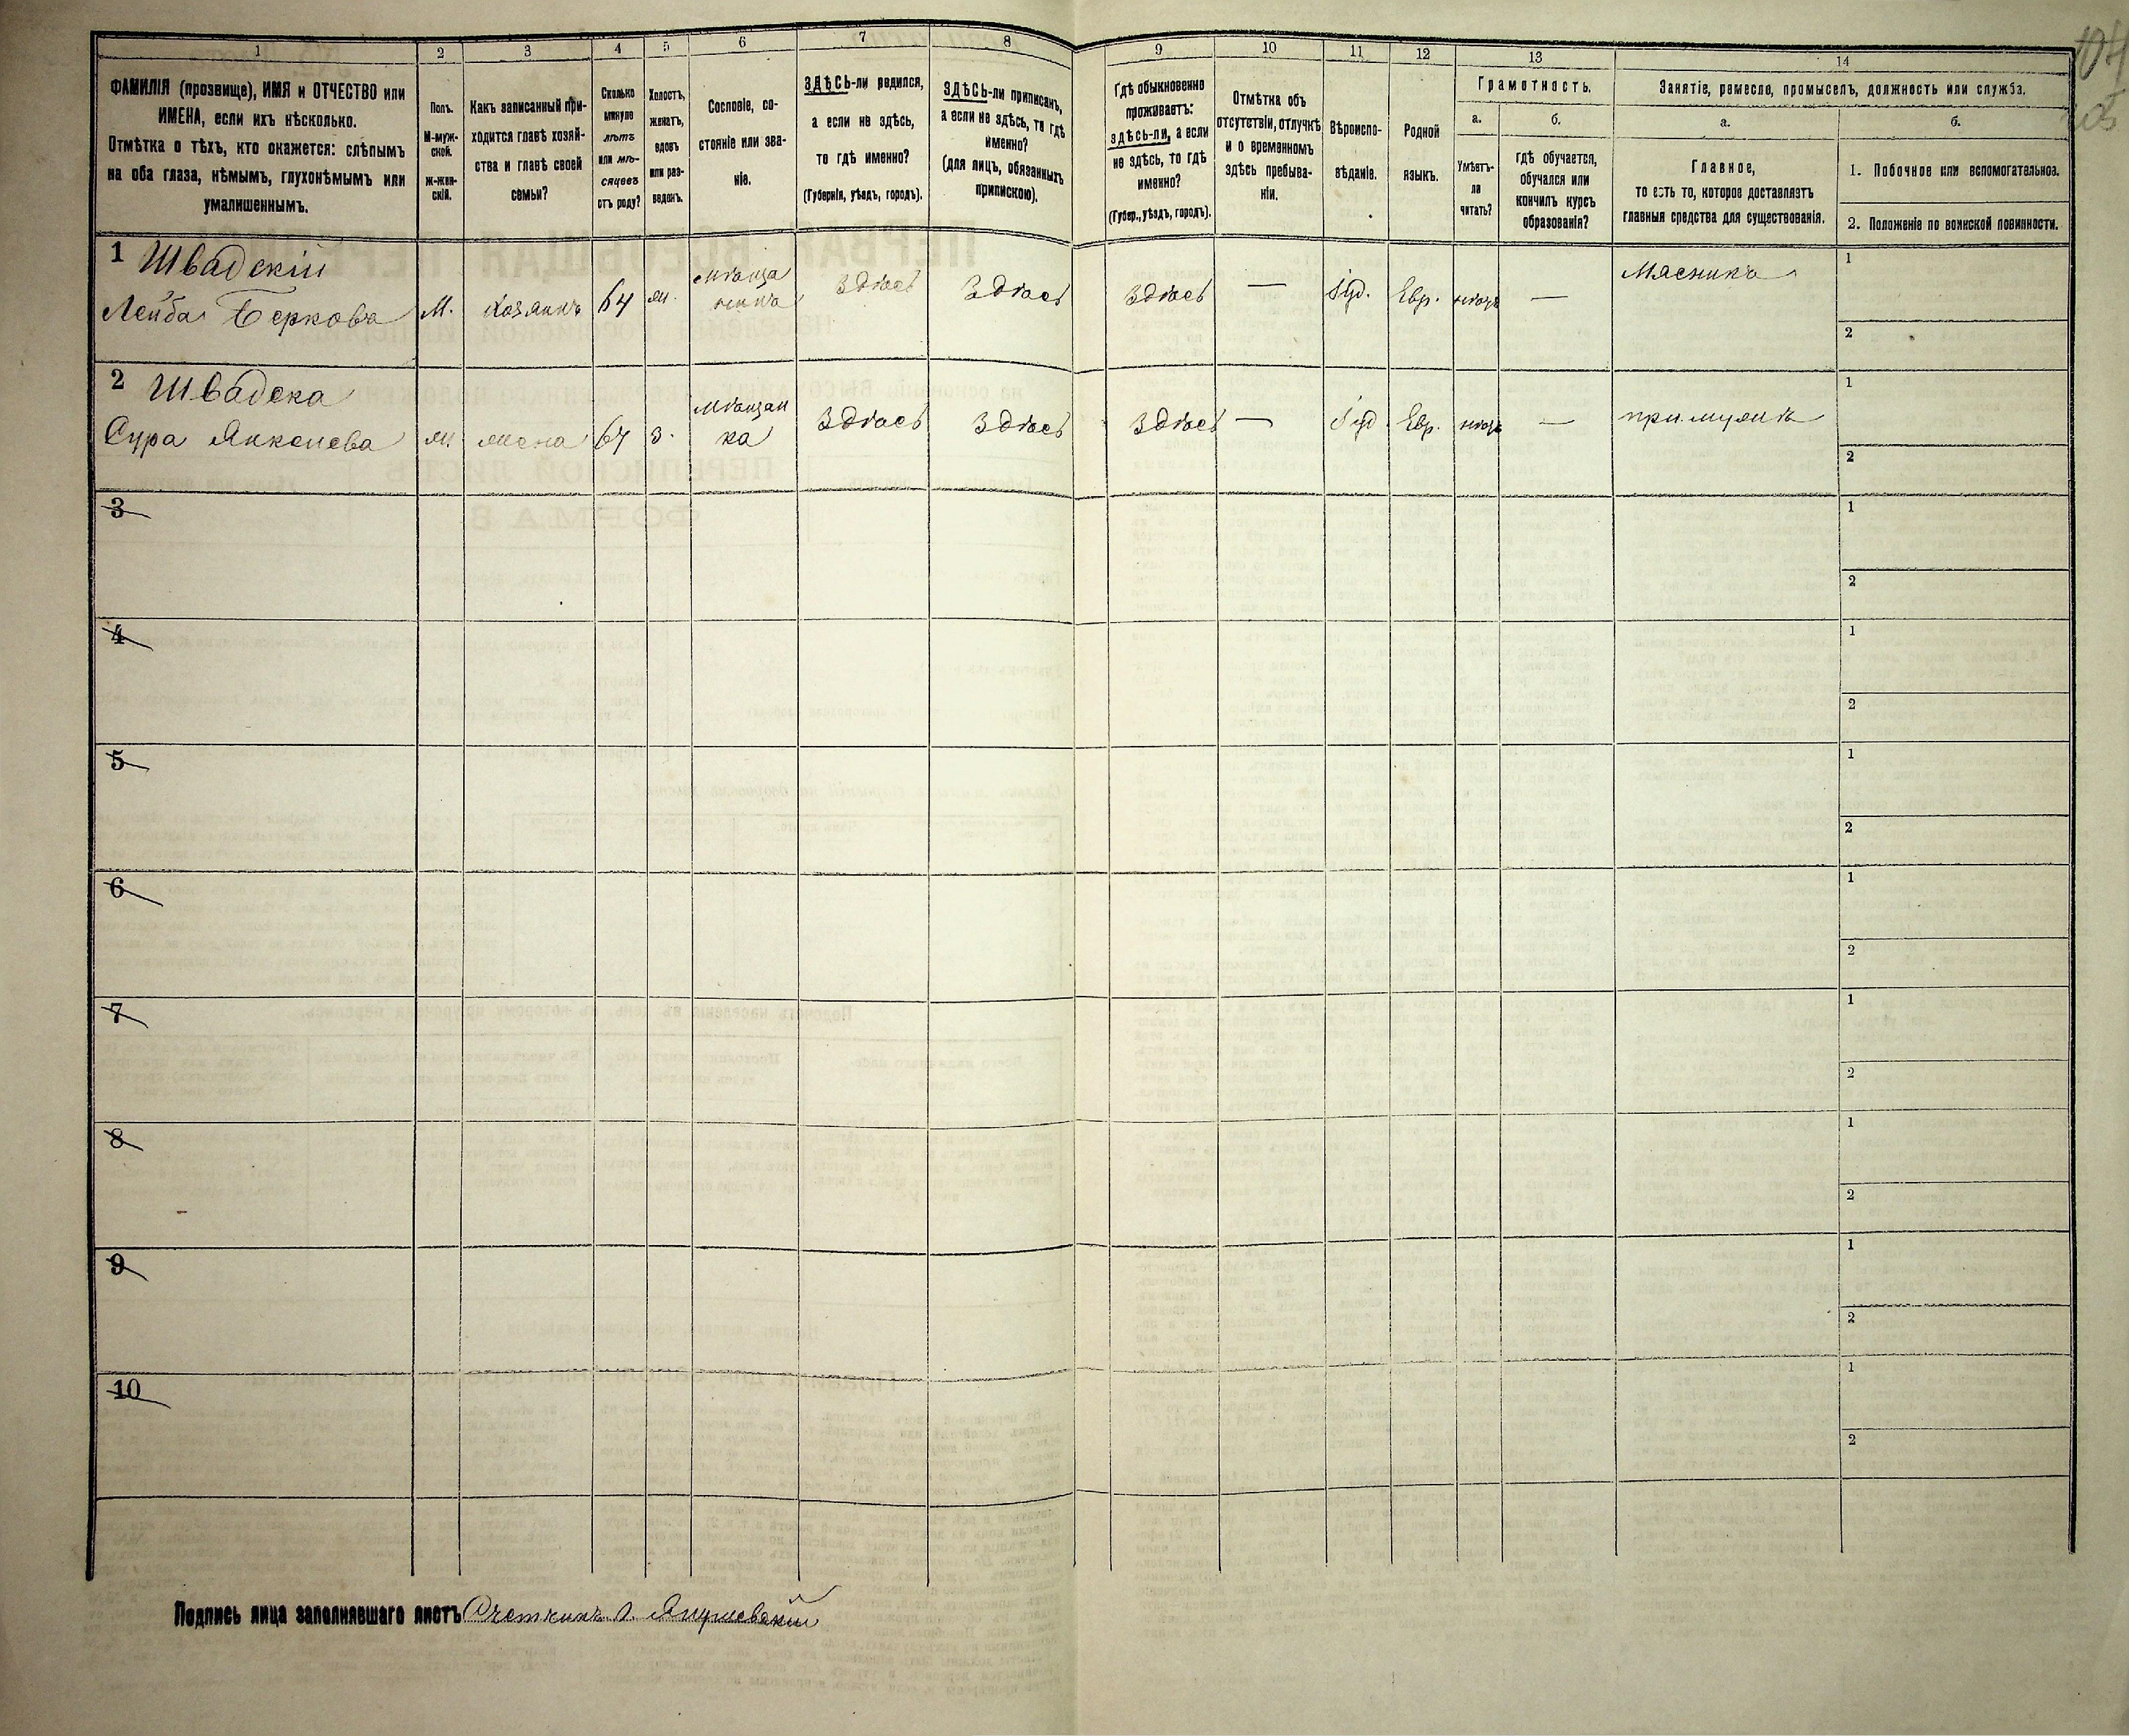 1
2
3
4
5
6
7
8
9
10
11
12
13
14
104
ФАМИЛІЯ (прозвище), ИМЯ и ОТЧЕСТВО или
ИМЕНА, если ихъ нѣсколько.
Отмѣтка о тѣхъ, кто окажется: слѣпымъ
на оба глаза, нѣмымъ, глухонѣмымъ или
умалишеннымъ.
Полъ.
М-муж-
ской.
ж-жен-
скій.
Какъ записанный при-
ходится главѣ хозяй-
ства и главѣ своей
семьи?
Сколько
минуло
лѣтъ
или мѣ-
сяцевъ
отъ роду?
Холостъ,
женатъ,
вдовъ
или раз-
веденъ.
Сословіе, со-
стояніе или зва-
ніе.
ЗДѢСЬ-ли родился,
а если не здѣсь,
то гдѣ именно?
(Губернія, уѣздъ, городъ).
ЗДѢСЬ-ли приписанъ,
а если не здѣсь, то гдѣ
именно?
(для лицъ, обязанныхъ
припискою).
Гдѣ обыкновенно
проживаетъ:
здѣсь-ли, а если
не здѣсь, то гдѣ
именно?
(Губер., уѣздъ, городъ).
Отмѣтка объ
отсутствіи, отлучкѣ
и о временномъ
здѣсь пребыва-
ніи.
Вѣроиспо-
вѣданіе.
Родной
языкъ.
Грамотность.
а.
Умѣетъ-
ли
читать?
б.
гдѣ обучается,
обучался или
кончилъ курсъ
образованія?
Занятіе, ремесло, промыселъ, должность или служба.
а.
Главное,
то есть то, которое доставляетъ
главныя средства для существованія.
б.
1. Побочное или вспомогательное.
2. Положеніе по воинской повинности.
1 Швадскій
Лейба Берковъ
М.
Хозяинъ
64
ж.
мѣща
нинъ
Здѣсь
Здѣсь
Здѣсь
—
Іуд.
Евр.
—
Мясникъ
1
2
2 Швадска
Сура Янкелева
ж
жена
64
з.
мѣщан
ка
Здѣсь
Здѣсь
Здѣсь
—
Іуд
Евр.
—
при мужѣ
1
2
3
1
2
4
1
2
5
1
2
6
1
2
7
1
2
8
1
2
9
1
2
10
1
2
Подпись лица заполнявшаго листъ Счетчикъ О. Янушевскій